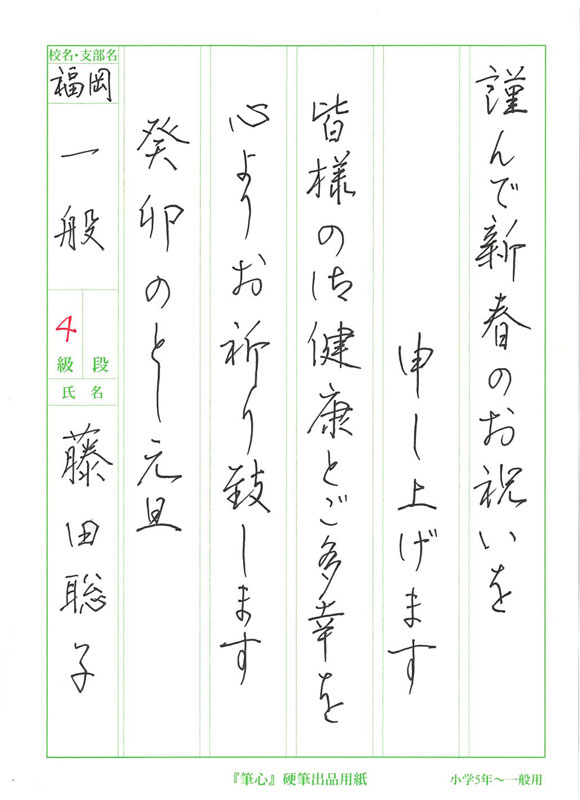 謹んで新春のお祝いを
申し上げます
皆様の御健康とご多幸を
心よりお祈り致します
癸卯のとし元旦
校名・支部名
福岡
一般
4
級 段
氏名
藤田聡子
『筆心』硬筆出品用紙
小学5年〜一般用